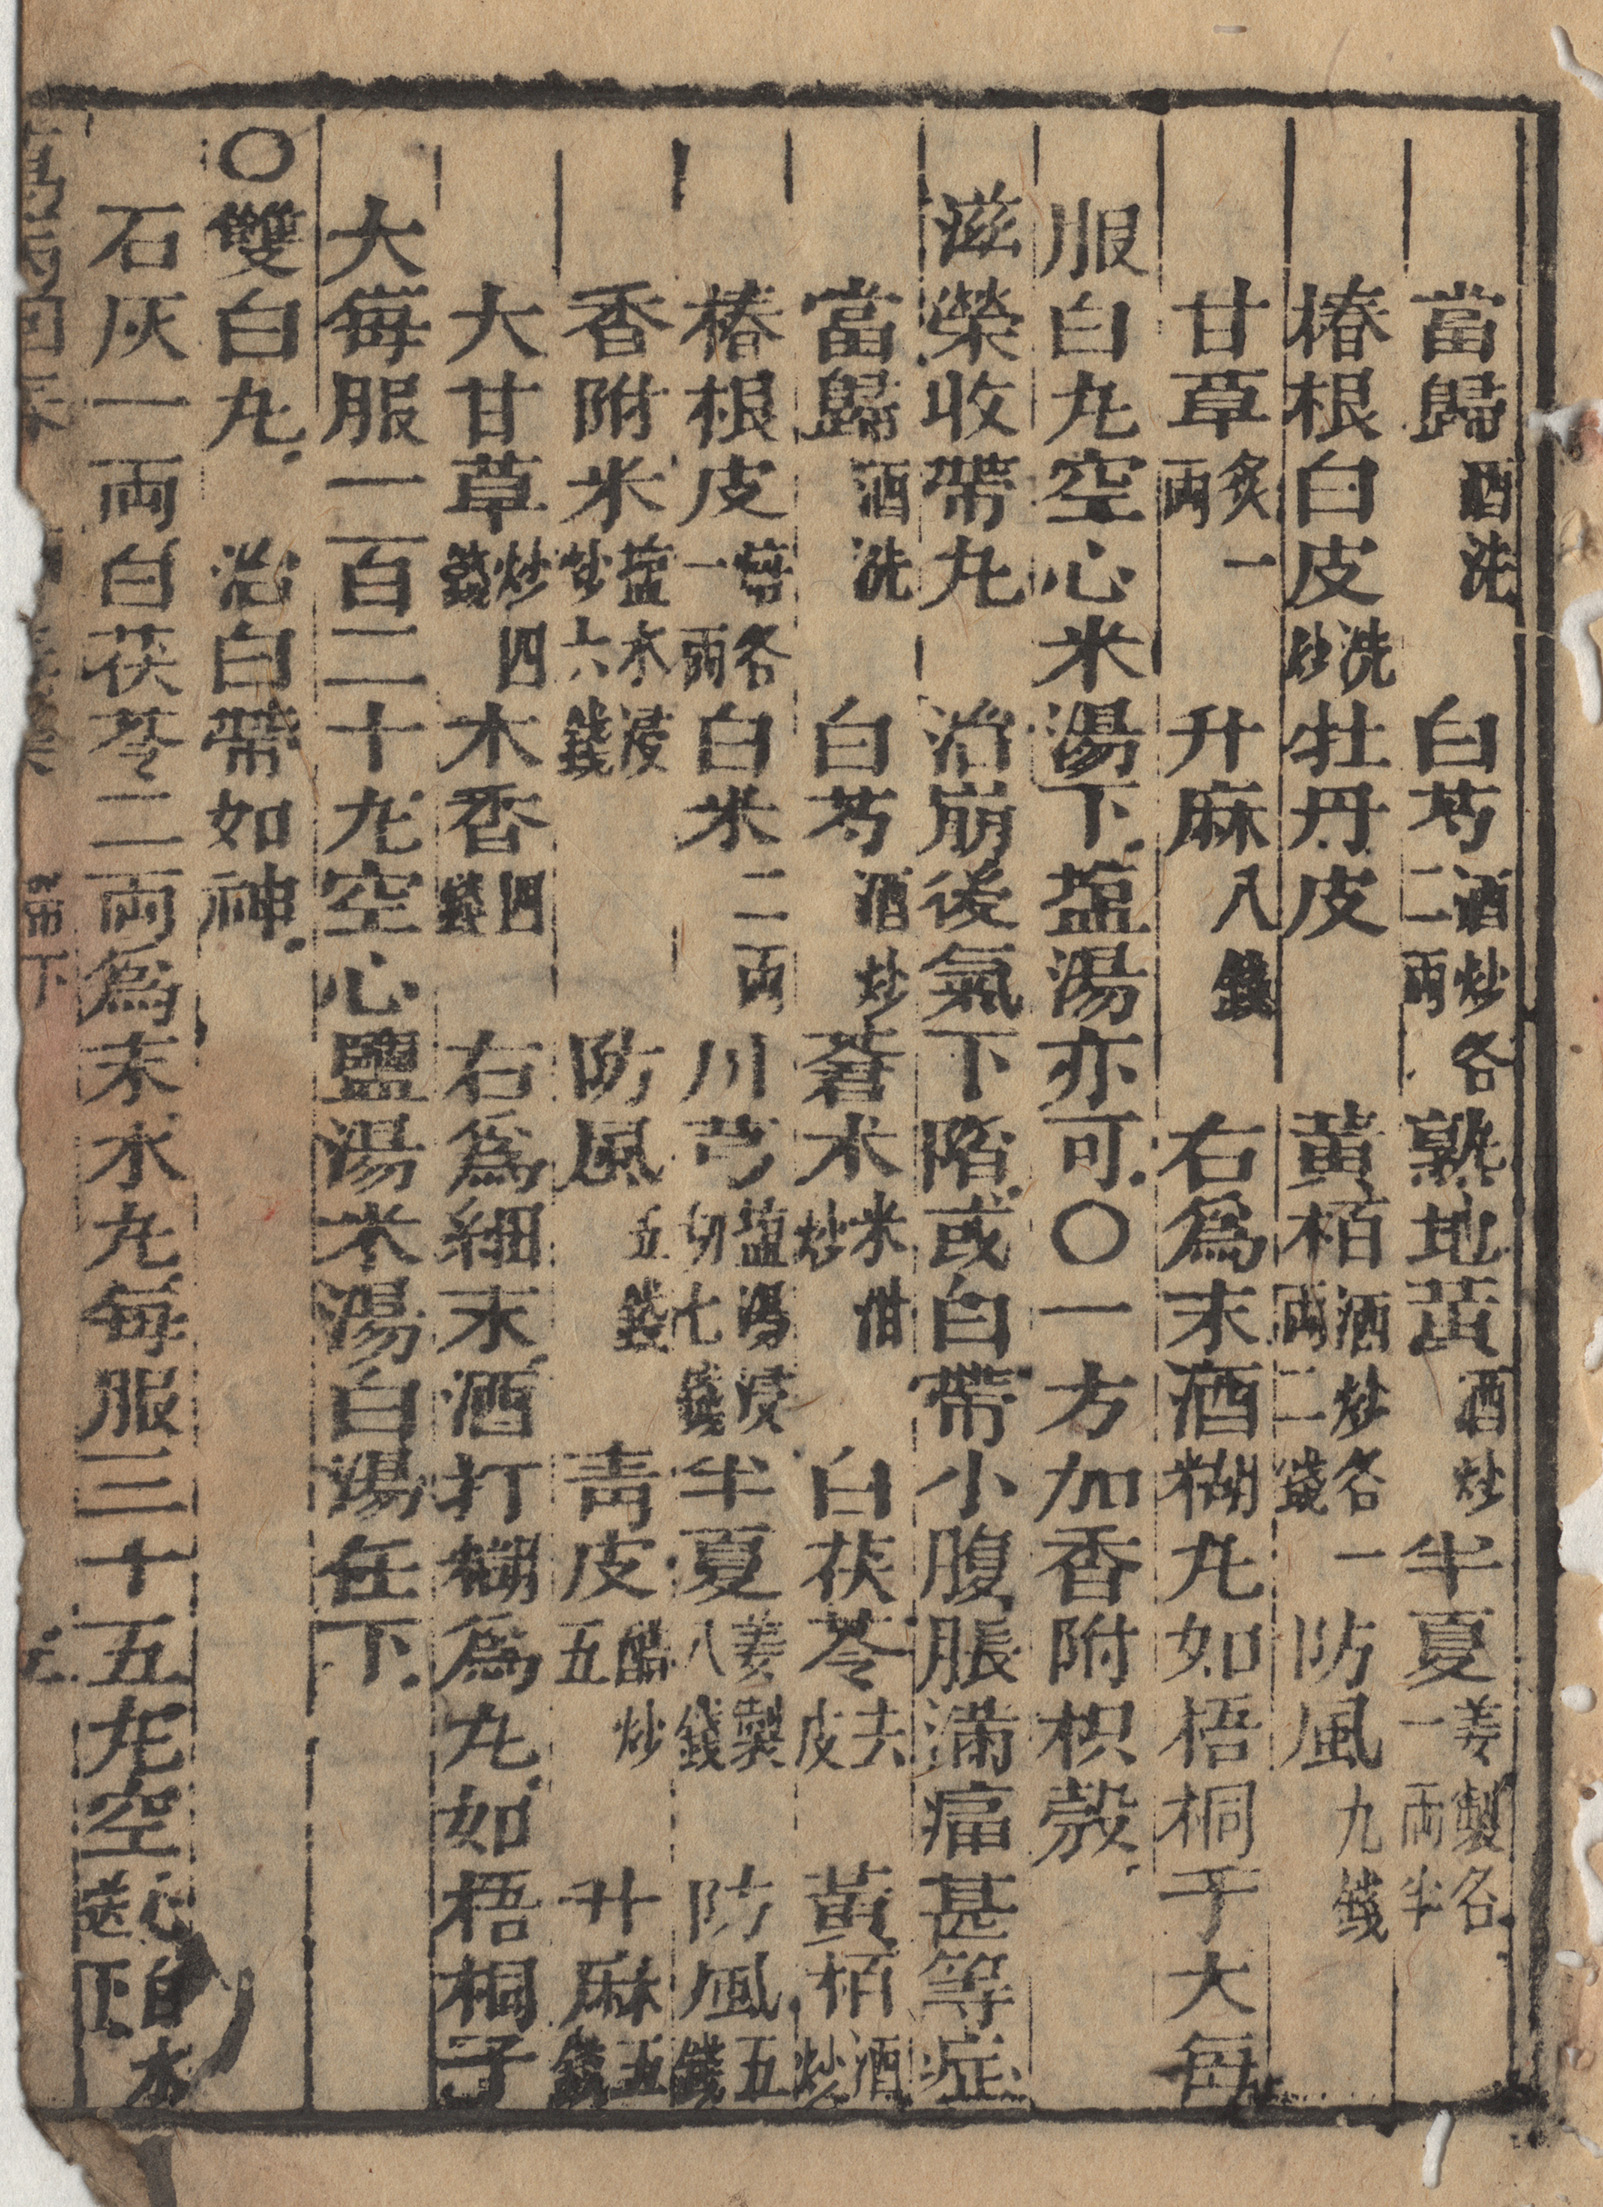 當歸酒洗白芍酒炒各二兩熟地黃酒炒半夏姜製各一兩半
椿根白皮洗炒牡丹皮黃栢酒炒各一兩二錢防風九錢
甘草炙一兩升麻八錢右爲末酒糊丸如梧桐于大每
服白丸空心米湯下塩湯亦可〇一方加香附枳殼
滋榮收帶丸治崩後氣下陷或白帶小腹脹滿痛甚等症
當歸酒洗白芍酒炒蒼术米泔炒白茯苓去皮黃栢酒炒
椿根皮焙各一兩白米二兩川芎塩湯浸切七錢半夏姜製八錢防風五錢
香附米塩水浸炒六錢防風五錢青皮醋炒五升麻五錢
大甘草炒四錢木香四錢右爲細末酒打糊爲丸如梧桐子
大每服一百二十丸空心鹽湯米湯白湯任下
〇雙白丸治白帶如神
石灰一兩白茯苓二兩爲末水丸每服三十五丸空心白水送下
萬病回春
帶下